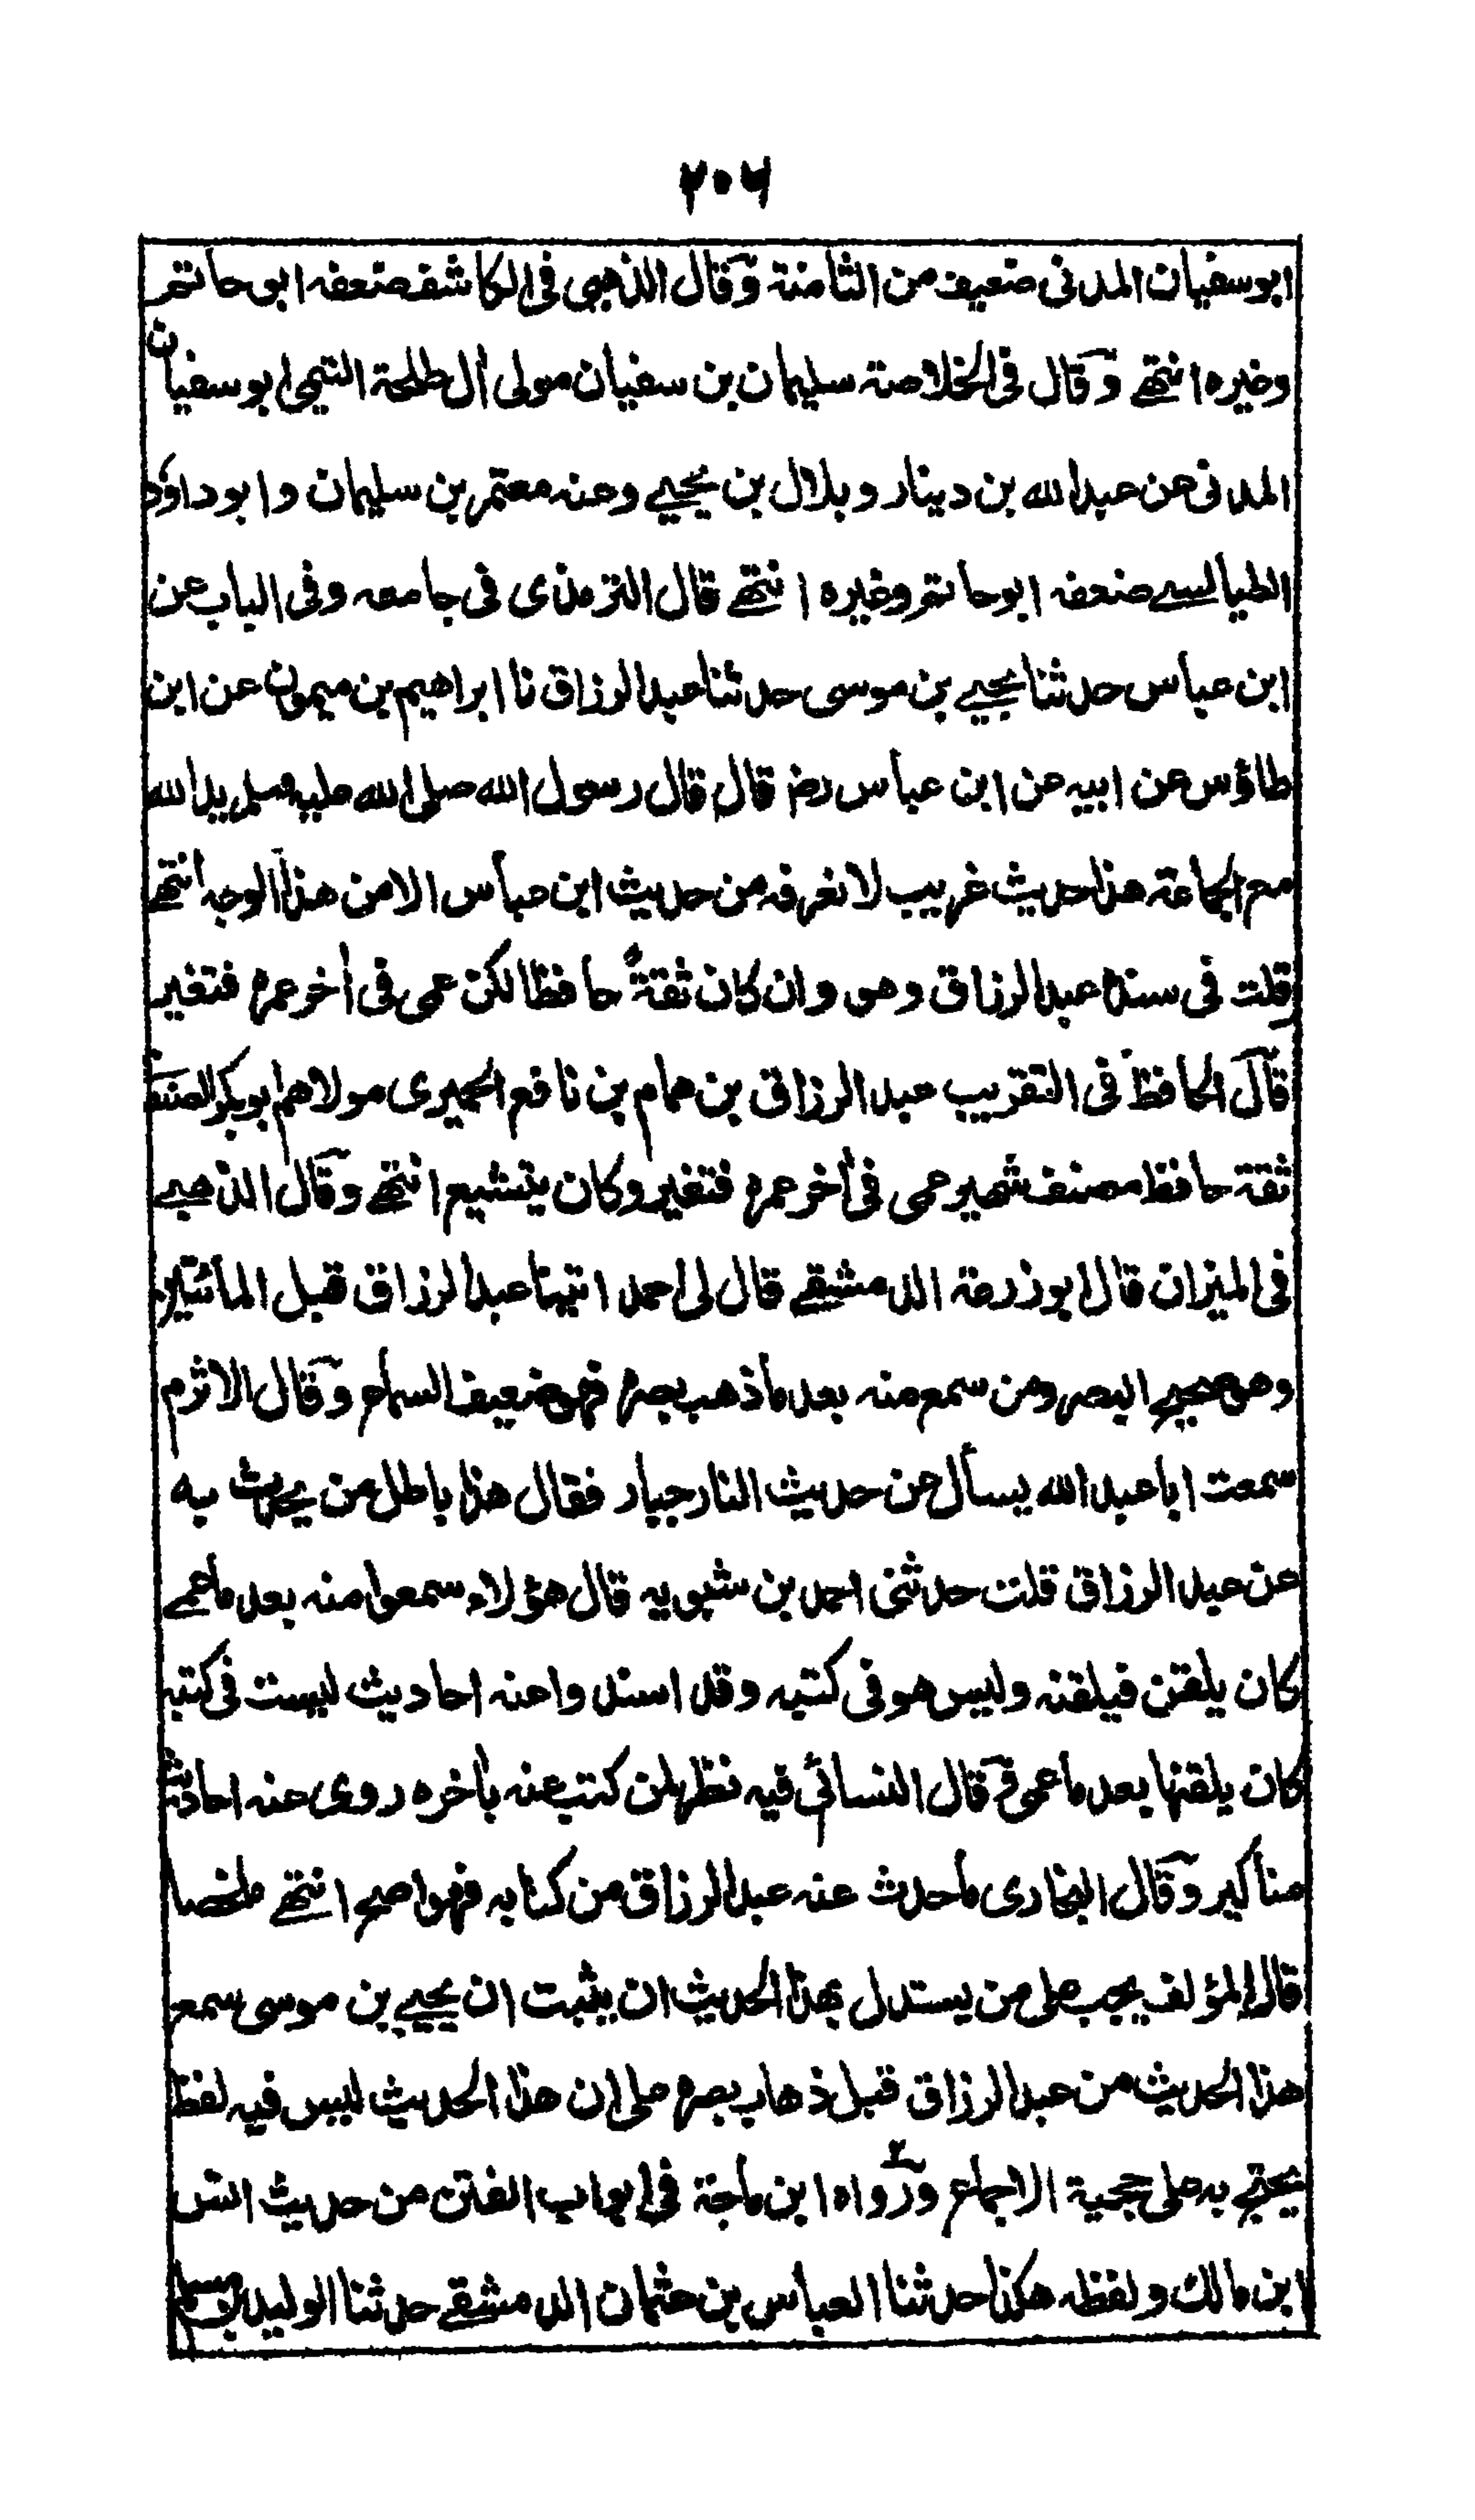 ۲۰۶
ابو سفيان المدنى ضعيف من الثامنة وقال الذهبى فى الكاشف ضعفه ابو حاتم
وغيره انتهے وقال فى الخلاصة سليمان بن سفيان مولى آل طلحة التيمى ابو سفيان
المدنى عن عبد الله بن دينار وبلال بن يحيے وعنه معتمر بن سليمان وابو داؤد
الطيالسے ضعفه ابو حاتم وغيره انتهے قال الترمذى فى جامعه وفى الباب عن
ابن عباس حدثنا يحيے بن موسى حدثنا عبد الرزاق نا ابراهيم بن ميمون عن ابن
طاؤس عن ابيه عن ابن عباس رض قال قال رسول الله صلى الله عليه وسلم يد الله
مع الجماعة هذا حديث غريب لا نعرفه من حديث ابن عباس الا من هذا الوجه انتهے
قلت فى سنده عبد الرزاق وهو وان كان ثقةً حافظا لكن عمى فى آخر عمره فتغير
قال الحافظ فى التقريب عبد الرزاق بن همام بن نافع الحميرى مولاهم ابو بكر الصنعانى
ثقة حافظ مصنف شهير عمى فى آخر عمره فتغير وكان يتشيع انتهے وقال الذهبے
فى الميزان قال ابو زرعة الدمشقے قال لى احمد اتينا عبد الرزاق قبل المائتين
وهو صحيح البصر ومن سمع منه بعد ما ذهب بصره فهو ضعيف السماع وقال الاثرم
سمعت ابا عبد الله يسأل عن حديث النار جبار فقال هذا باطل من يحدث به
عن عبد الرزاق قلت حدثنى احمد بن شبويه قال هؤلاء سمعوا منه بعد ما عمے
كان يلقن فيلقنه وليس هو فى كتبه وقد اسندوا عنه احاديث ليست فى كتبه
كان يلقنها بعد ما عمى وقال النسائى فيه نظر لمن كتب عنه بأخره روى عنه احاديث
مناكير وقال البخارى ما حدث عنه عبد الرزاق من كتابه فهو اصح انتهے ملخصا
قال المؤلف يجب على من يستدل بهذا الحديث ان يثبت ان يحيے بن موسى سمع
هذا الحديث من عبد الرزاق قبل ذهاب بصره على ان هذا الحديث ليس فيه لفظ
يحتج به على حجية الاجماع ورواه ابن ماجة فى ابواب الفتن من حديث انس
ابن مالك ولفظه هكذا حدثنا العباس بن عثمان الدمشقے حدثنا الوليد بن مسلم